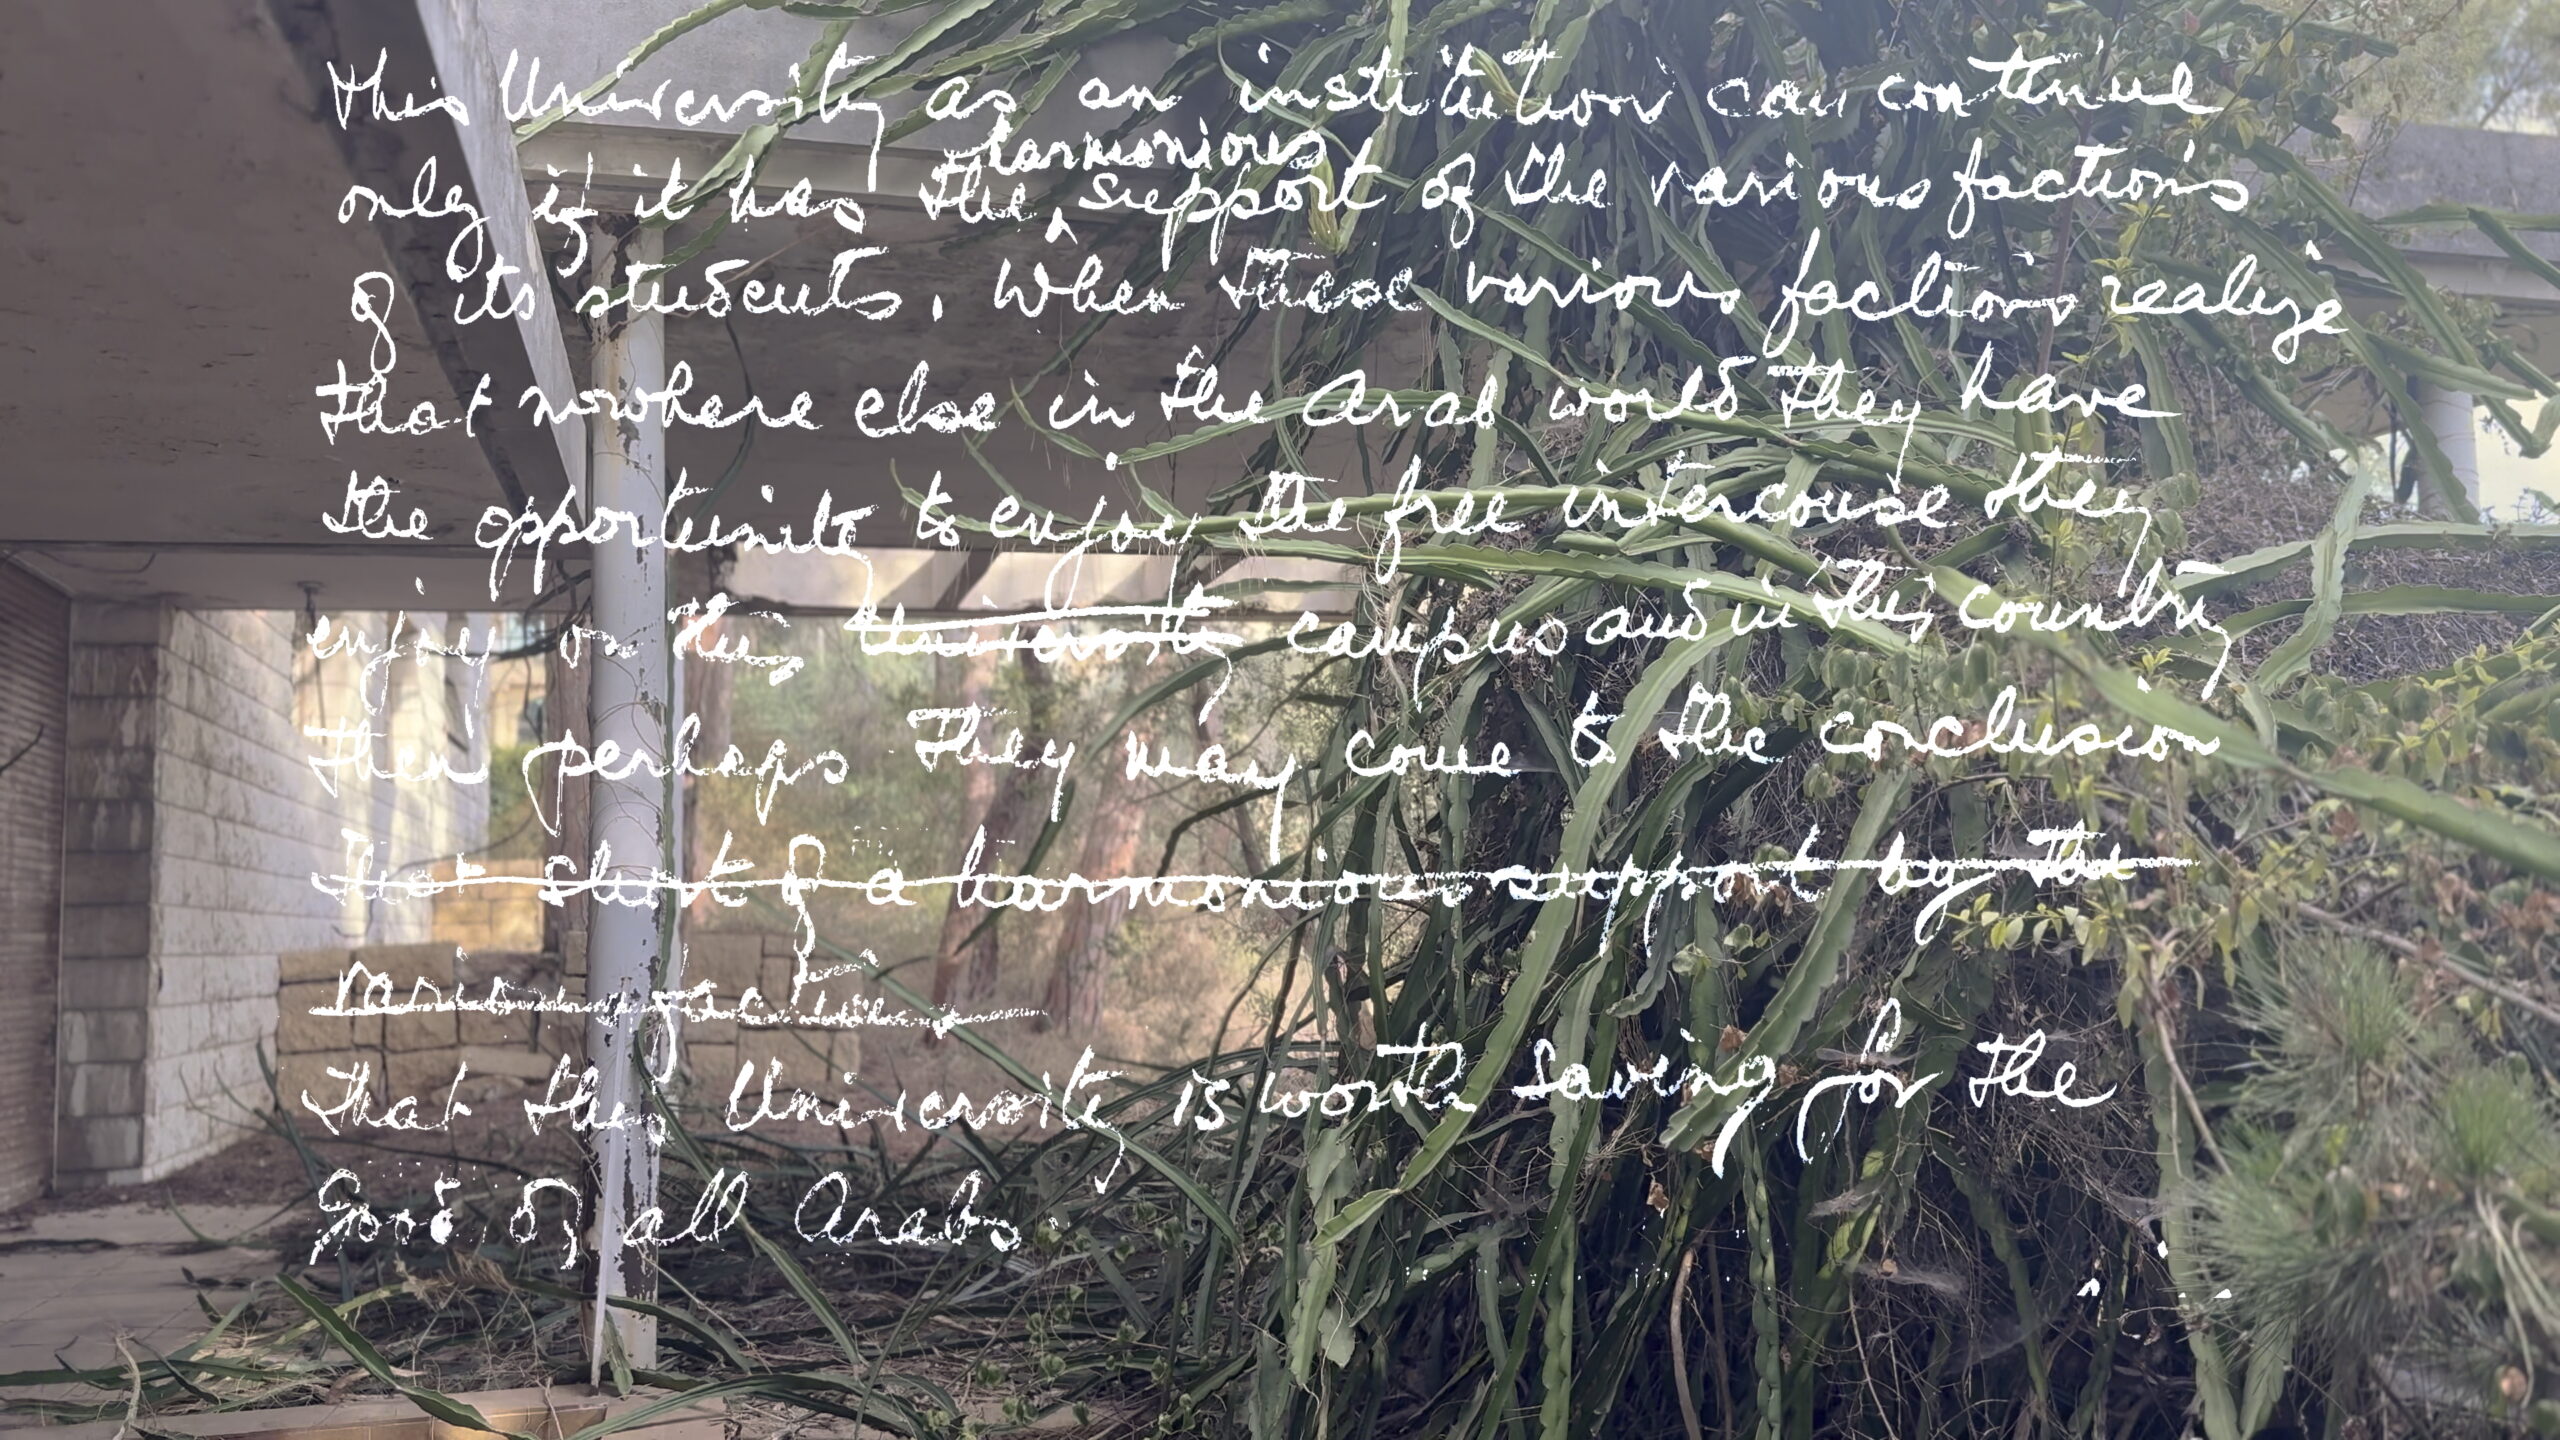 this University as an institution can continue
harmonious
only if it has the ‸ support of the various factions
of its students. When these various factions realize
that nowhere else in the Arab world they have
the opportunity to enjoy the free intercouse they
enjoy on this University campus and in this country
then perhaps they may come to the conclusion
that short of a harmonious support by the
various factions
that this University is worth saving for the
good of all Arabs.